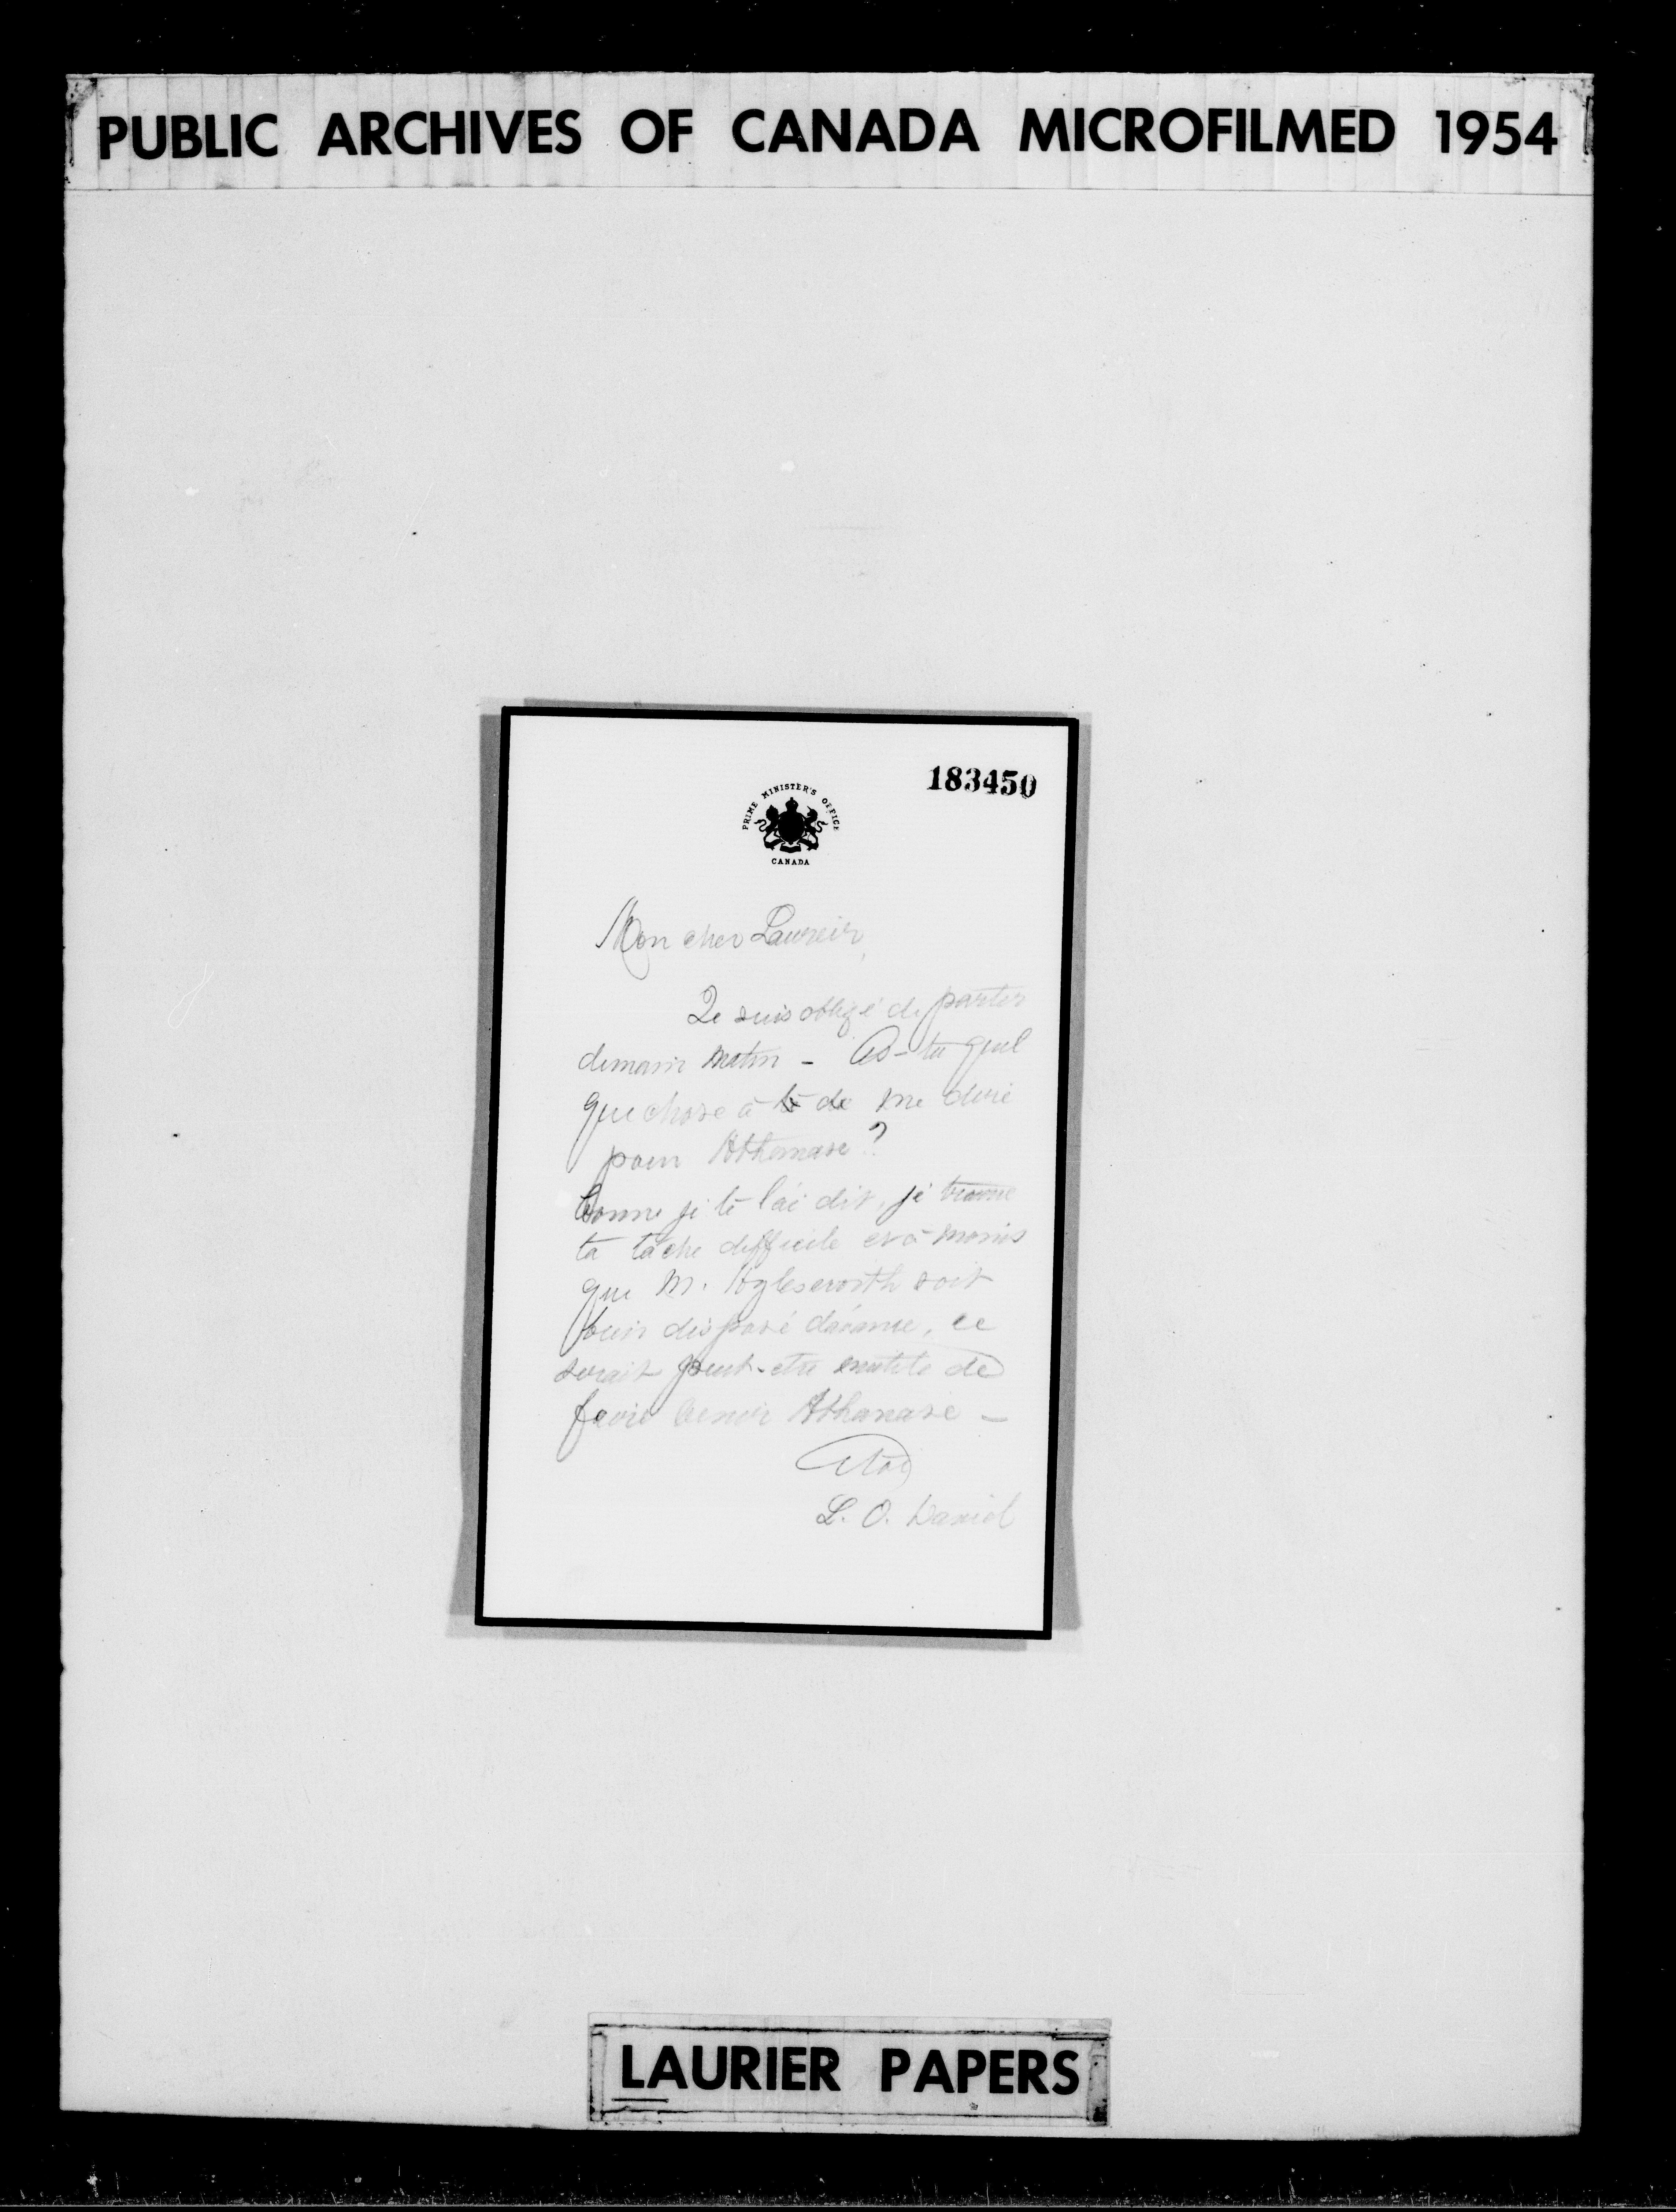 PUBLIC ARCHIVES OF CANADA MICROFILMED 1954
183450
PRIME MINISTER'S OFFICE
CANADA
Mon cher Laurier,
Je suis obligé de partir
demain matin - As-tu quel
que chose à te de me dire
pour Athanase?
Comme je te l'ai dit, je trouve
ta tâche difficile et à moins
que M. Aylesworth soit
bien disposé d'avance, ce
serait peut-etre inutile de
faire venir Athanase -
A toi
L. O. David
LAURIER PAPERS